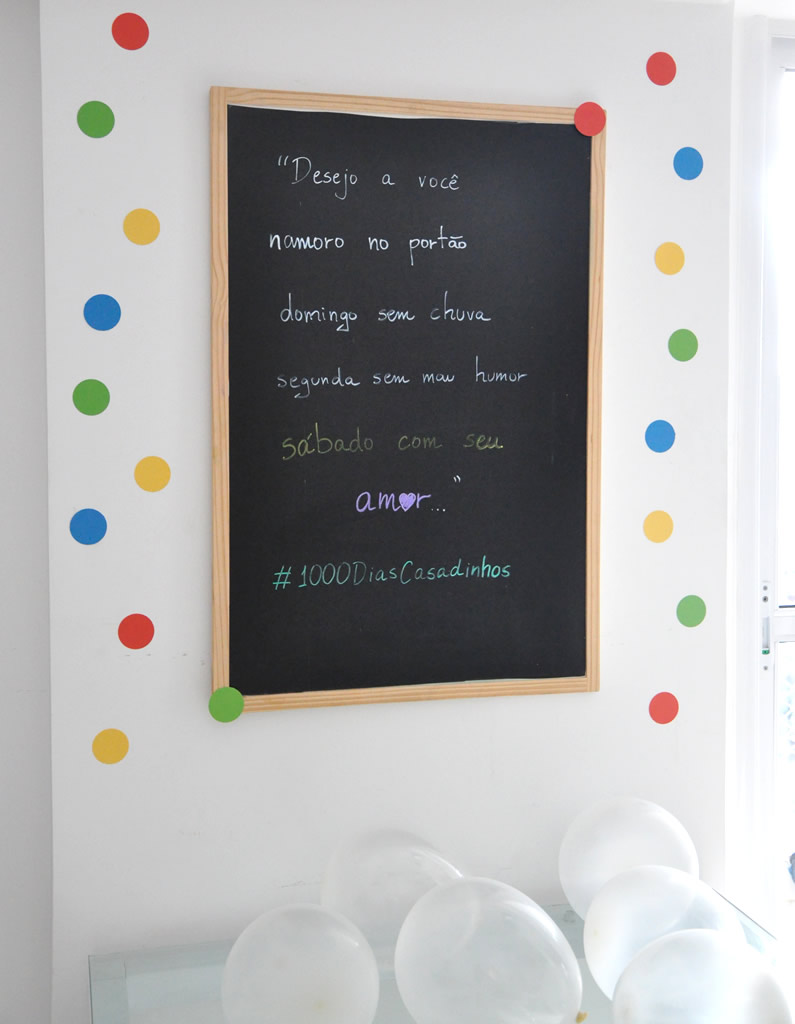 “Desejo a você
namoro no portão
domingo sem chuva
segunda sem mau humor
sábado com seu
am♥r...”
#1000DiasCasadinhos